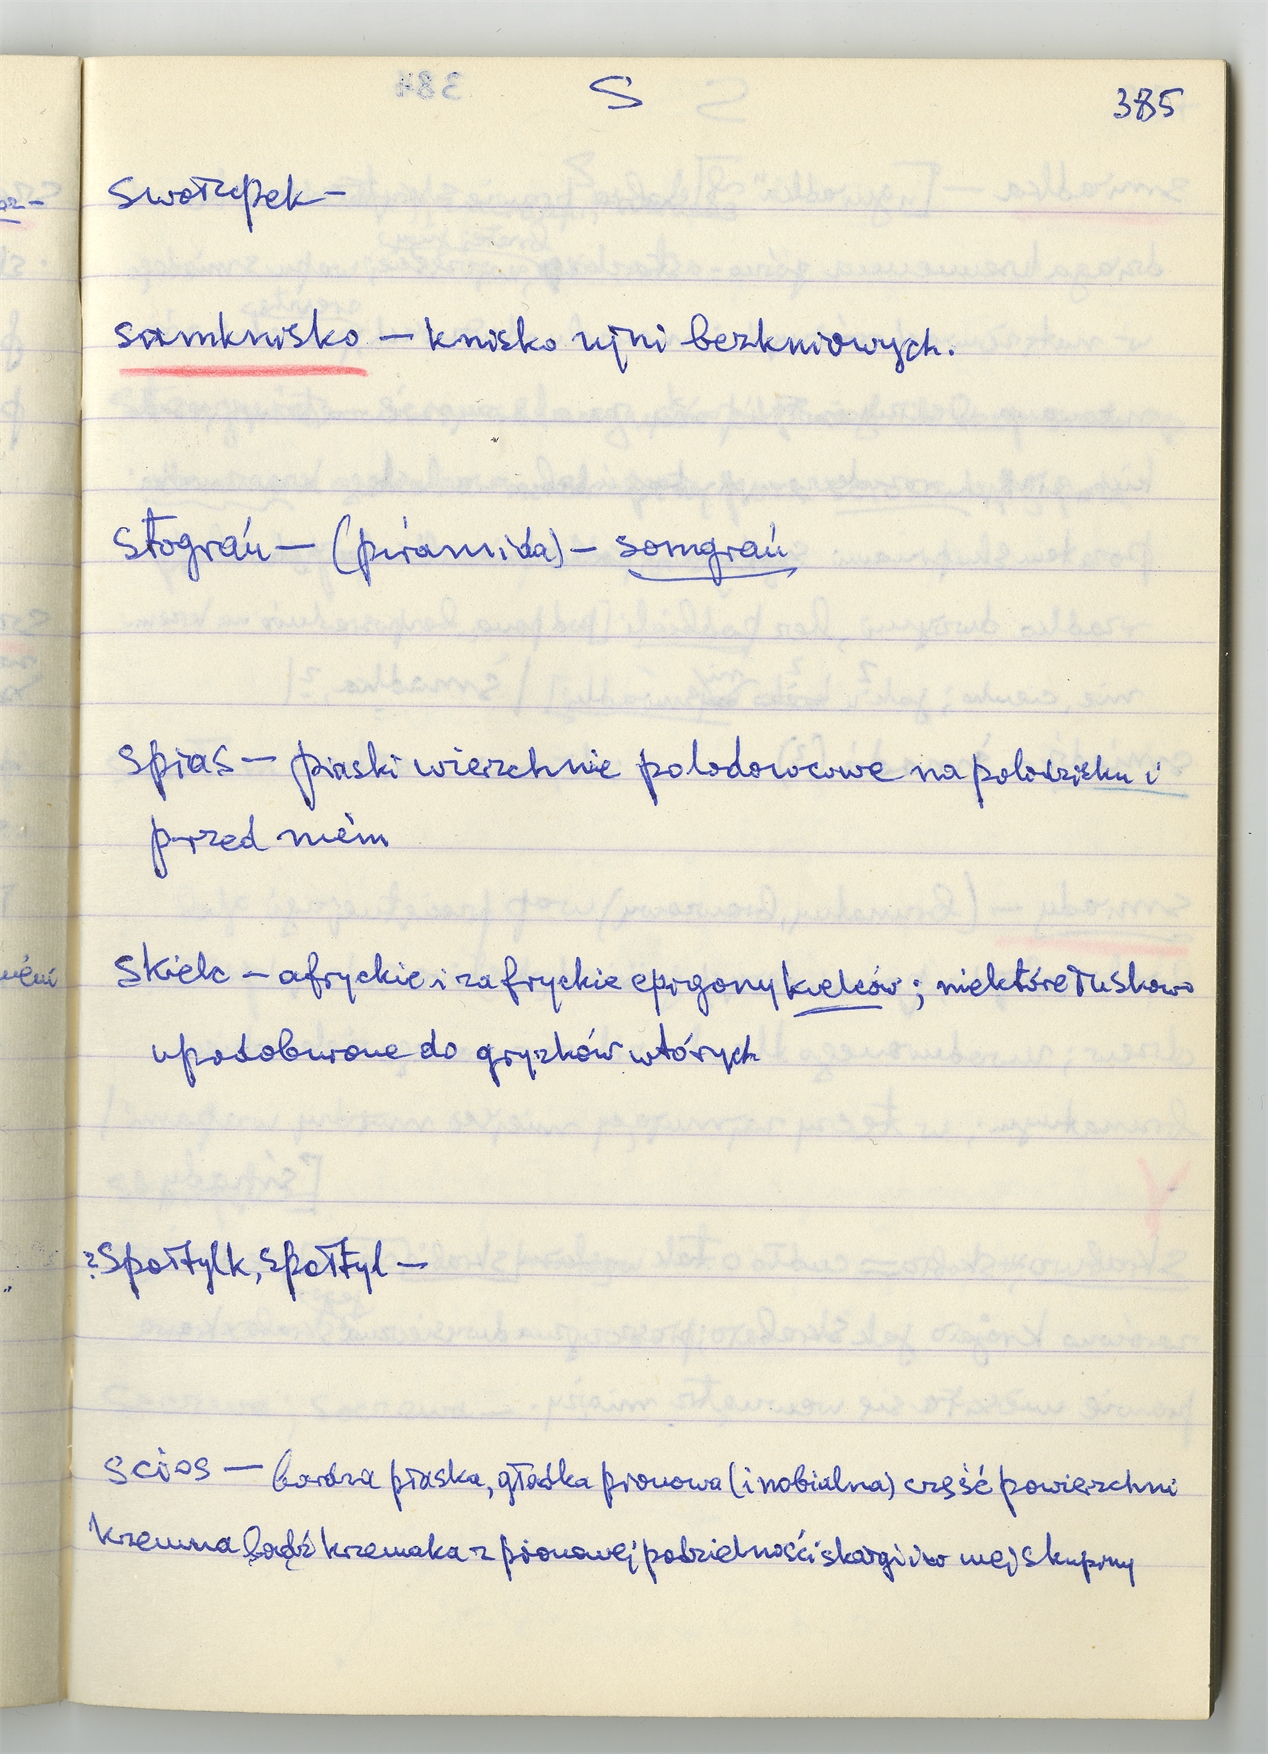 S
385
swołrpek –
samknisko – knisko ujni bezkniowych.
stograń – (piramida) – somgrań
spias – piaski wierzchnie polodowcowe na polodzieku i
przed niém
skielc – afryckie i zafryckie epigony kielców; niektóre łuskowo
upodobnione do gryzków wtórych
?społtylk, społtyl –
scios – bardzo płaska, gładka pionowa (i nobialna) część powierzchni
krzemna bądź krzemaka z pionowej podzielności skargi i w niej skupiny